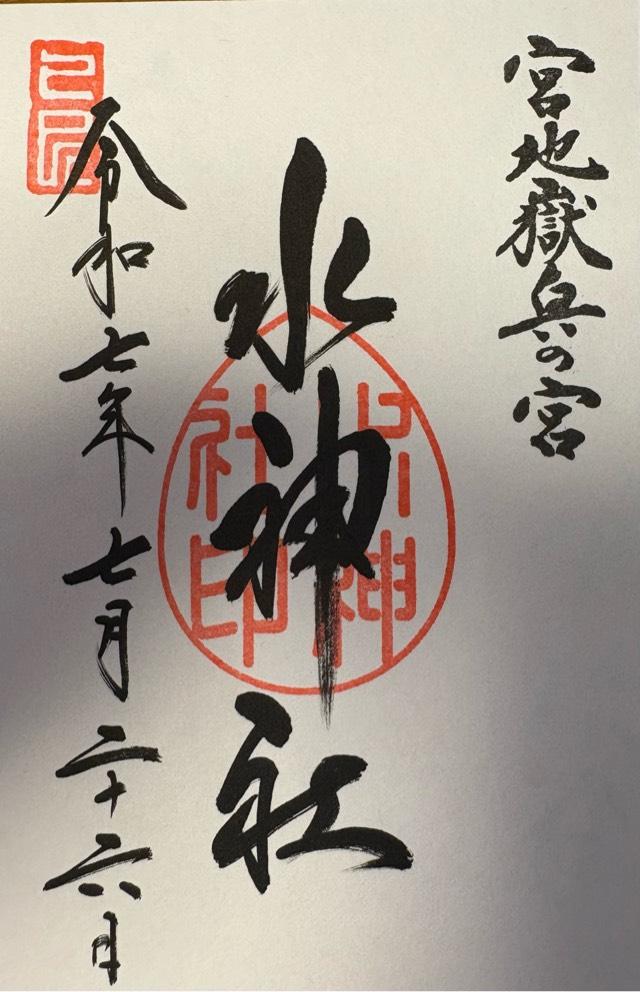 宮地嶽奥の宮
水神社
水神
社印
令和七年七月二十六日